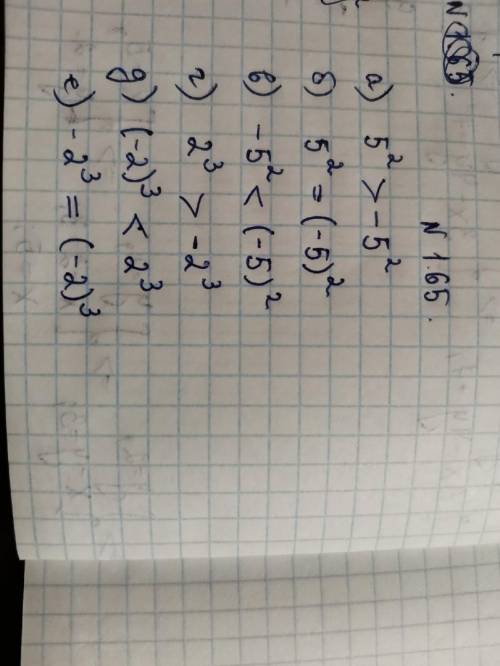 N 1.65.
N 1.65.
а) 5² > -5²
б) 5² = (-5)²
в) -5² < (-5)²
г) 2³ > -2³
д) (-2)³ < 2³
е) -2³ = (-2)³